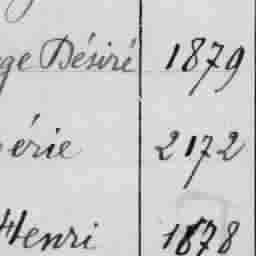 ge Désiré 1879
érie 2172
Henri 1878